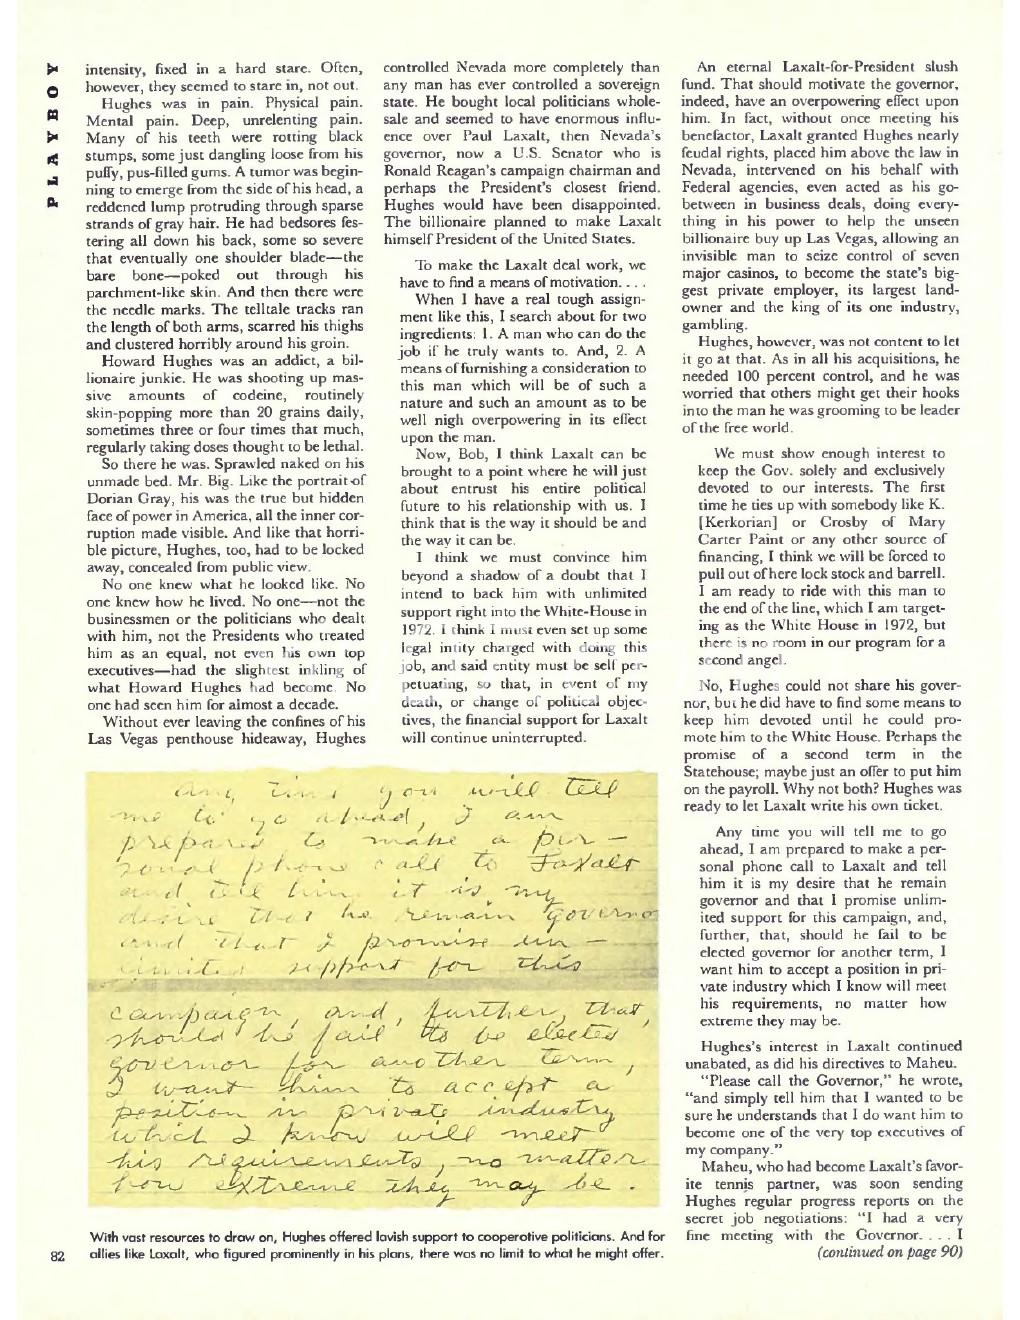 PLAYBOY
intensity, fixed in a hard stare. Often,
however, they seemed to stare in, not out.
Hughes was in pain. Physical pain.
Mental pain. Deep, unrelenting pain.
Many of his teeth were rotting black
stumps, some just dangling loose from his
puffy, pus-filled gums. A tumor was begin-
ning to emerge from the side of his head, a
reddened lump protruding through sparse
strands of gray hair. He had bedsores fes-
tering all down his back, some so severe
that eventually one shoulder blade—the
bare bone—poked out through his
parchment-like skin. And then there were
the needle marks. The telltale tracks ran
the length of both arms, scarred his thighs
and clustered horribly around his groin.
Howard Hughes was an addict, a bil-
lionaire junkie. He was shooting up mas-
sive amounts of codeine, routinely
skin-popping more than 20 grains daily,
sometimes three or four times that much,
regularly taking doses thought to be lethal.
So there he was. Sprawled naked on his
unmade bed. Mr. Big. Like the portrait of
Dorian Gray, his was the true but hidden
face of power in America, all the inner cor-
ruption made visible. And like that horri-
ble picture, Hughes, too, had to be locked
away, concealed from public view.
No one knew what he looked like. No
one knew how he lived. No one—not the
businessmen or the politicians who dealt
with him, not the Presidents who treated
him as an equal, not even his own top
executives—had the slightest inkling of
what Howard Hughes had become. No
one had seen him for almost a decade.
Without ever leaving the confines of his
Las Vegas penthouse hideaway, Hughes
controlled Nevada more completely than
any man has ever controlled a sovereign
state. He bought local politicians whole-
sale and seemed to have enormous influ-
ence over Paul Laxalt, then Nevada's
governor, now a U.S. Senator who is
Ronald Reagan's campaign chairman and
perhaps the President's closest friend.
Hughes would have been disappointed.
The billionaire planned to make Laxalt
himself President of the United States.
To make the Laxalt deal work, we
have to find a means of motivation. . . .
When I have a real tough assign-
ment like this, I search about for two
ingredients: 1. A man who can do the
job if he truly wants to. And, 2. A
means of furnishing a consideration to
this man which will be of such a
nature and such an amount as to be
well nigh overpowering in its effect
upon the man.
Now, Bob, I think Laxalt can be
brought to a point where he will just
about entrust his entire political
future to his relationship with us. I
think that is the way it should be and
the way it can be.
I think we must convince him
beyond a shadow of a doubt that I
intend to back him with unlimited
support right into the White-House in
1972. I think I must even set up some
legal intity charged with doing this
job, and said entity must be self per-
petuating, so that, in event of my
death, or change of political objec-
tives, the financial support for Laxalt
will continue uninterrupted.
An eternal Laxalt-for-President slush
fund. That should motivate the governor,
indeed, have an overpowering effect upon
him. In fact, without once meeting his
benefactor, Laxalt granted Hughes nearly
feudal rights, placed him above the law in
Nevada, intervened on his behalf with
Federal agencies, even acted as his go-
between in business deals, doing every-
thing in his power to help the unseen
billionaire buy up Las Vegas, allowing an
invisible man to seize control of seven
major casinos, to become the state's big-
gest private employer, its largest land-
owner and the king of its one industry,
gambling.
Hughes, however, was not content to let
it go at that. As in all his acquisitions, he
needed 100 percent control, and he was
worried that others might get their hooks
into the man he was grooming to be leader
of the free world.
We must show enough interest to
keep the Gov. solely and exclusively
devoted to our interests. The first
time he ties up with somebody like K.
[Kerkorian] or Crosby of Mary
Carter Paint or any other source of
financing, I think we will be forced to
pull out of here lock stock and barrell.
I am ready to ride with this man to
the end of the line, which I am target-
ing as the White House in 1972, but
there is no room in our program for a
second angel.
No, Hughes could not share his gover-
nor, but he did have to find some means to
keep him devoted until he could pro-
mote him to the White House. Perhaps the
promise of a second term in the
Statehouse; maybe just an offer to put him
on the payroll. Why not both? Hughes was
ready to let Laxalt write his own ticket.
Any time you will tell me to go
ahead, I am prepared to make a per-
sonal phone call to Laxalt and tell
him it is my desire that he remain
governor and that I promise unlim-
ited support for this campaign, and,
further, that, should he fail to be
elected governor for another term, I
want him to accept a position in pri-
vate industry which I know will meet
his requirements, no matter how
extreme they may be.
Hughes's interest in Laxalt continued
unabated, as did his directives to Maheu.
"Please call the Governor," he wrote,
"and simply tell him that I wanted to be
sure he understands that I do want him to
become one of the very top executives of
my company."
Maheu, who had become Laxalt's favor-
ite tennis partner, was soon sending
Hughes regular progress reports on the
secret job negotiations: "I had a very
fine meeting with the Governor. . . . I
(continued on page 90)
any time you will tell
me to go ahead, I am
prepared to make a per-
sonal phone call to Laxalt
and tell him it is my
desire that he remain governo
and that I promise un-
limited support for this
campaign, and, further, that,
should he fail to be elected
governor for another term,
I want him to accept a
position in private industry
which I know will meet
his requirements, no matter
how extreme they may be.
With vast resources to draw on, Hughes offered lavish support to cooperative politicians. And for
allies like Laxalt, who figured prominently in his plans, there was no limit to what he might offer.
82